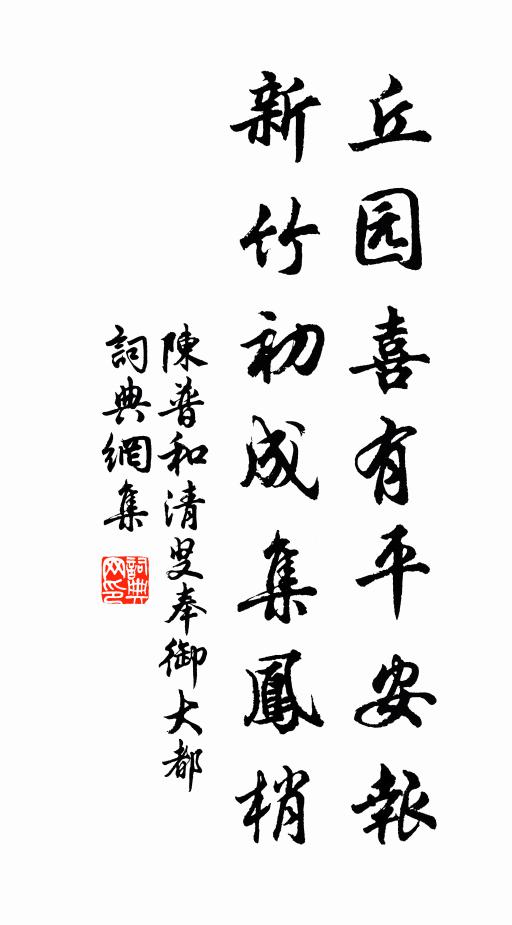 丘园喜有平安報
新竹初成集鳳梢
陳普和清叟奉御大都
詞典網集
詞典網印